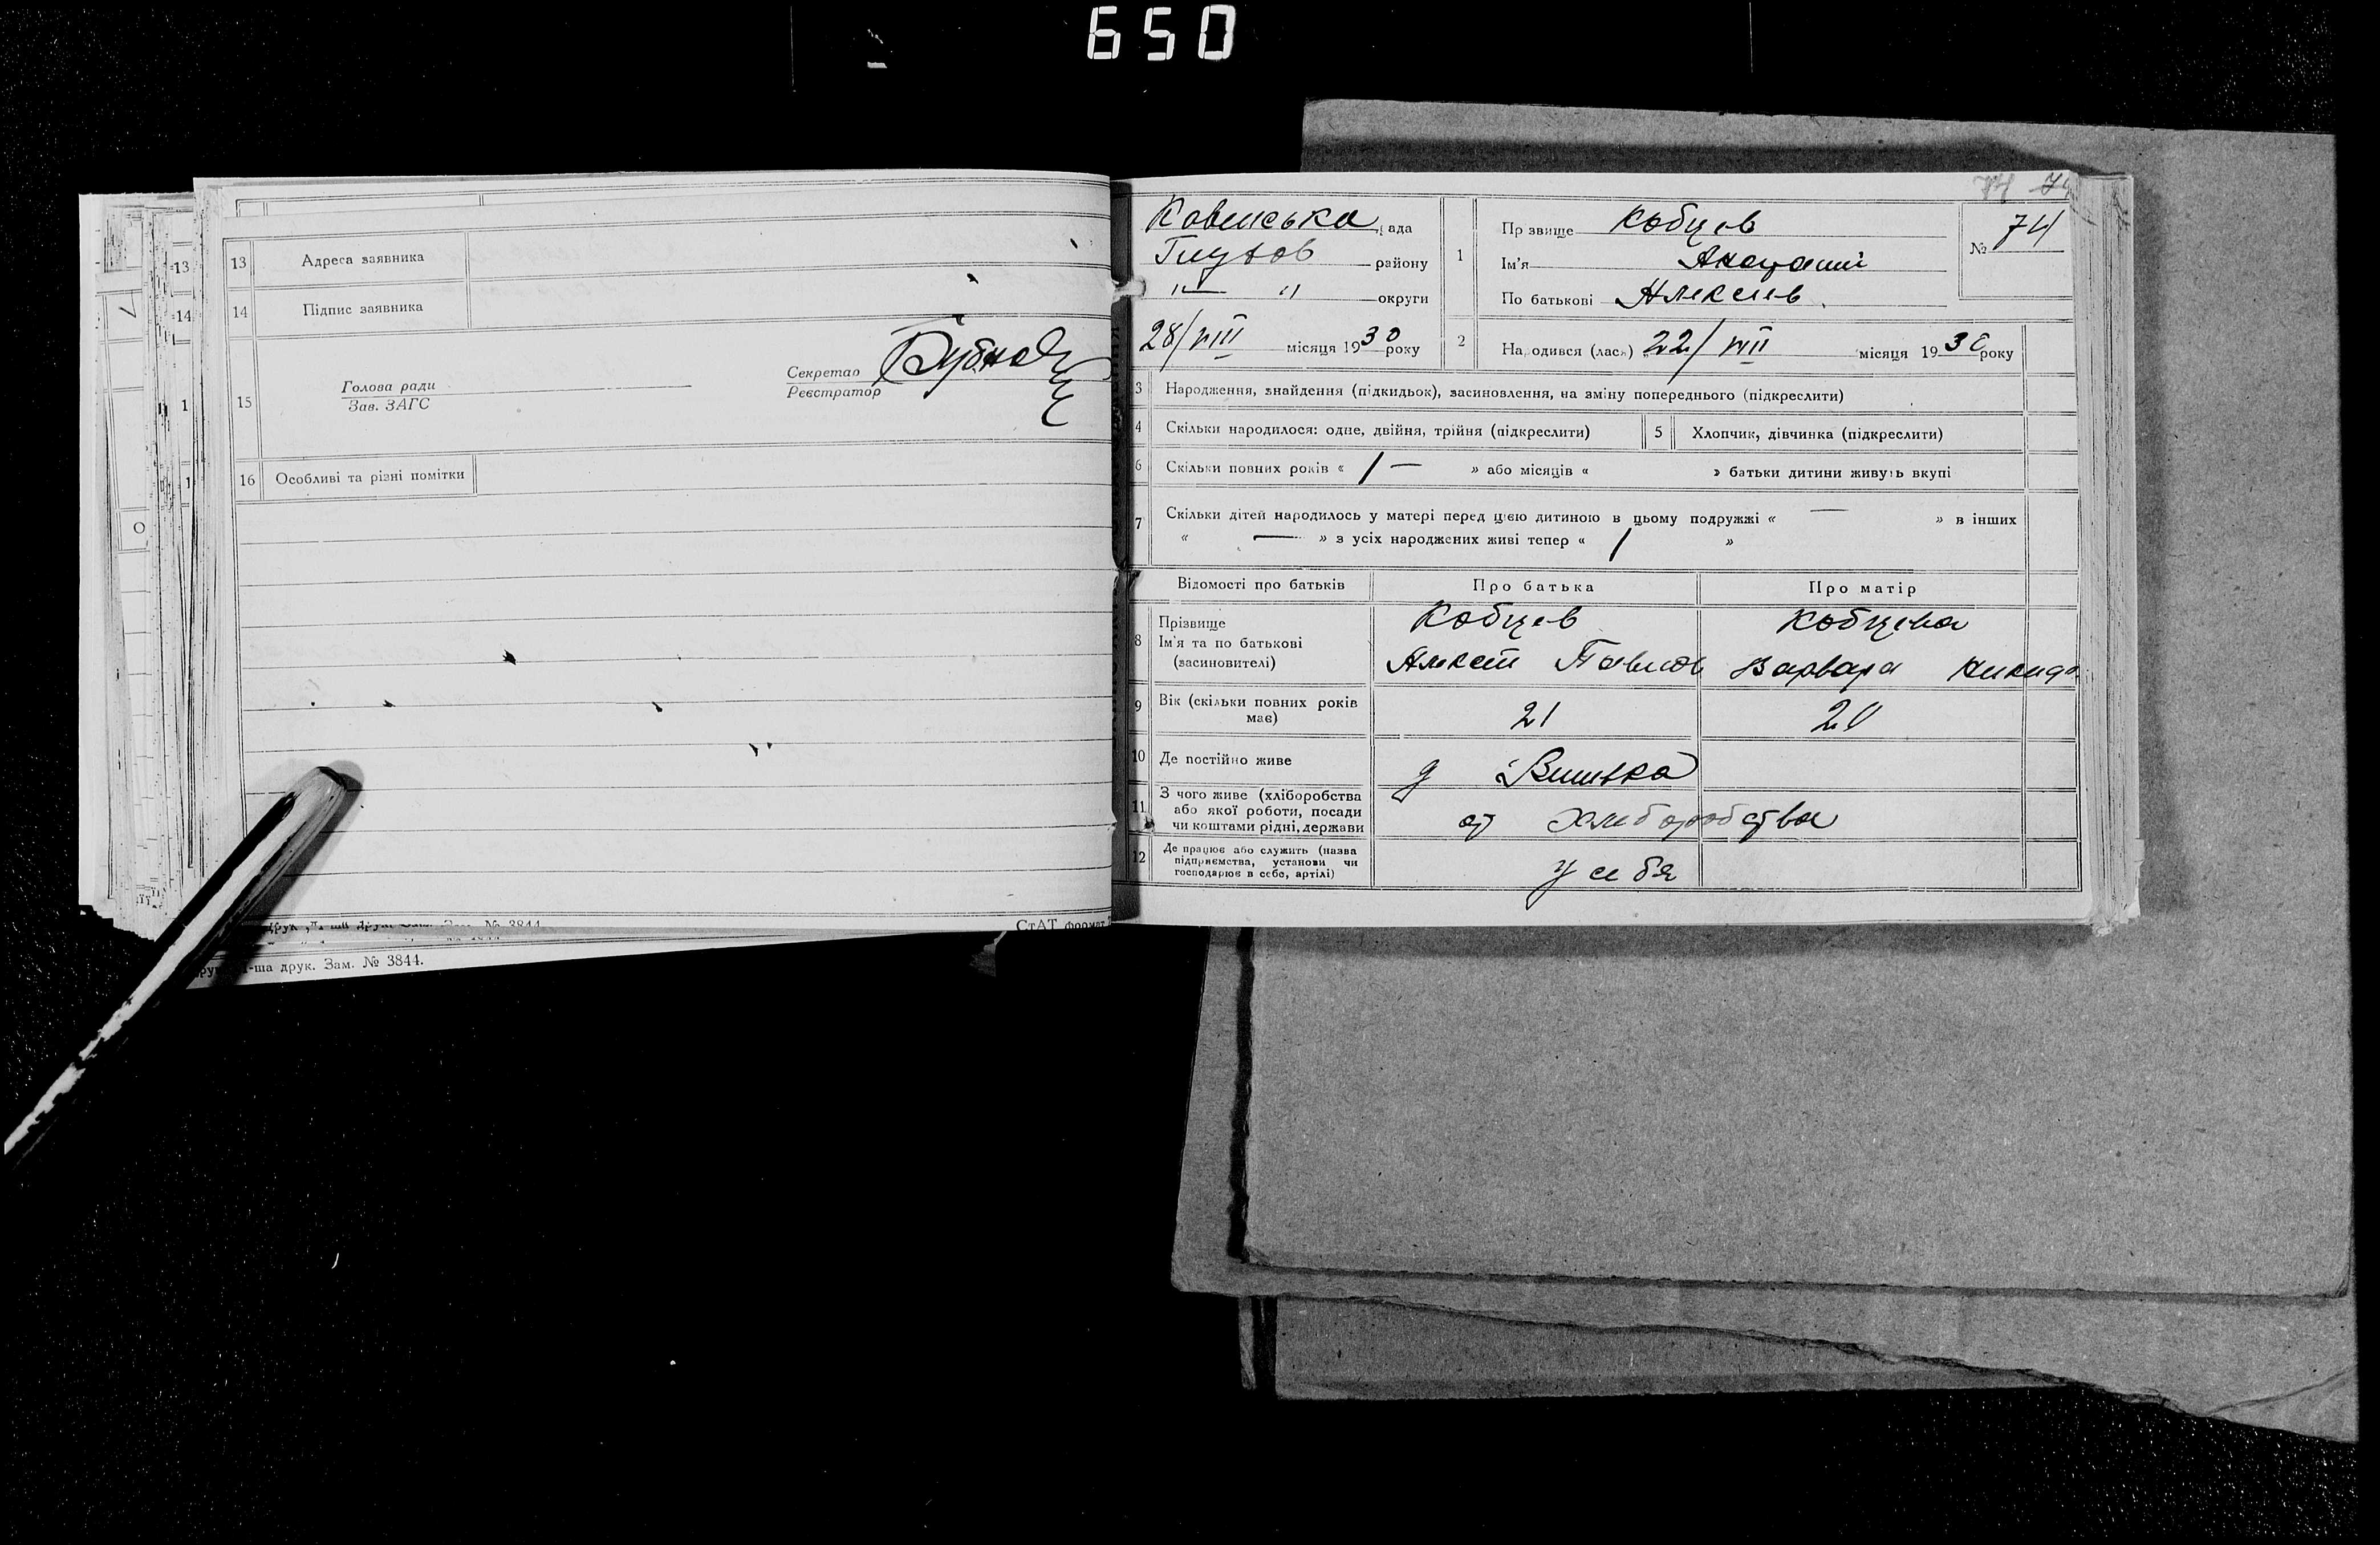 650
13 Адреса заявника
14 Підпис заявника
15 Голова ради
Зав. ЗАГС
Секретар
Реєстратор
16 Особливі та різні помітки
№ 3844
СтАТ формат
-ша друк. Зам. № 3844.
74
Ковенська рада
району
" — " округи
28/VIII місяця 1930 року
1 Прізвище Кобцев
Ім'я
По батькові Алексеев
№ 74
2 Народився (лася) 22/VIII місяця 1930 року
3 Народження, знайдення (підкидьок), засиновлення, на зміну попереднього (підкреслити)
4 Скільки народилося: одне, двійня, трійня (підкреслити) 5 Хлопчик, дівчинка (підкреслити)
6 Скільки повних років « 1 — » або місяців « » батьки дитини живуть вкупі
7 Скільки дітей народилось у матері перед цією дитиною в цьому подружжі « — » в інших
« — » з усіх народжених живі тепер « 1 »
Відомості про батьків Про батька Про матір
8 Прізвище Кобцев Кобцева
Ім'я та по батькові
(засиновителі) Алексей Павлов Варвара
9 Вік (скільки повних років має) 21 20
10 Де постійно живе д
11 З чого живе (хліборобства
або якої роботи, посади
чи коштами рідні, держави от хлеборобства
12 Де працює або служить (назва
підприємства, установи чи
господарює в себе, артілі) у себя